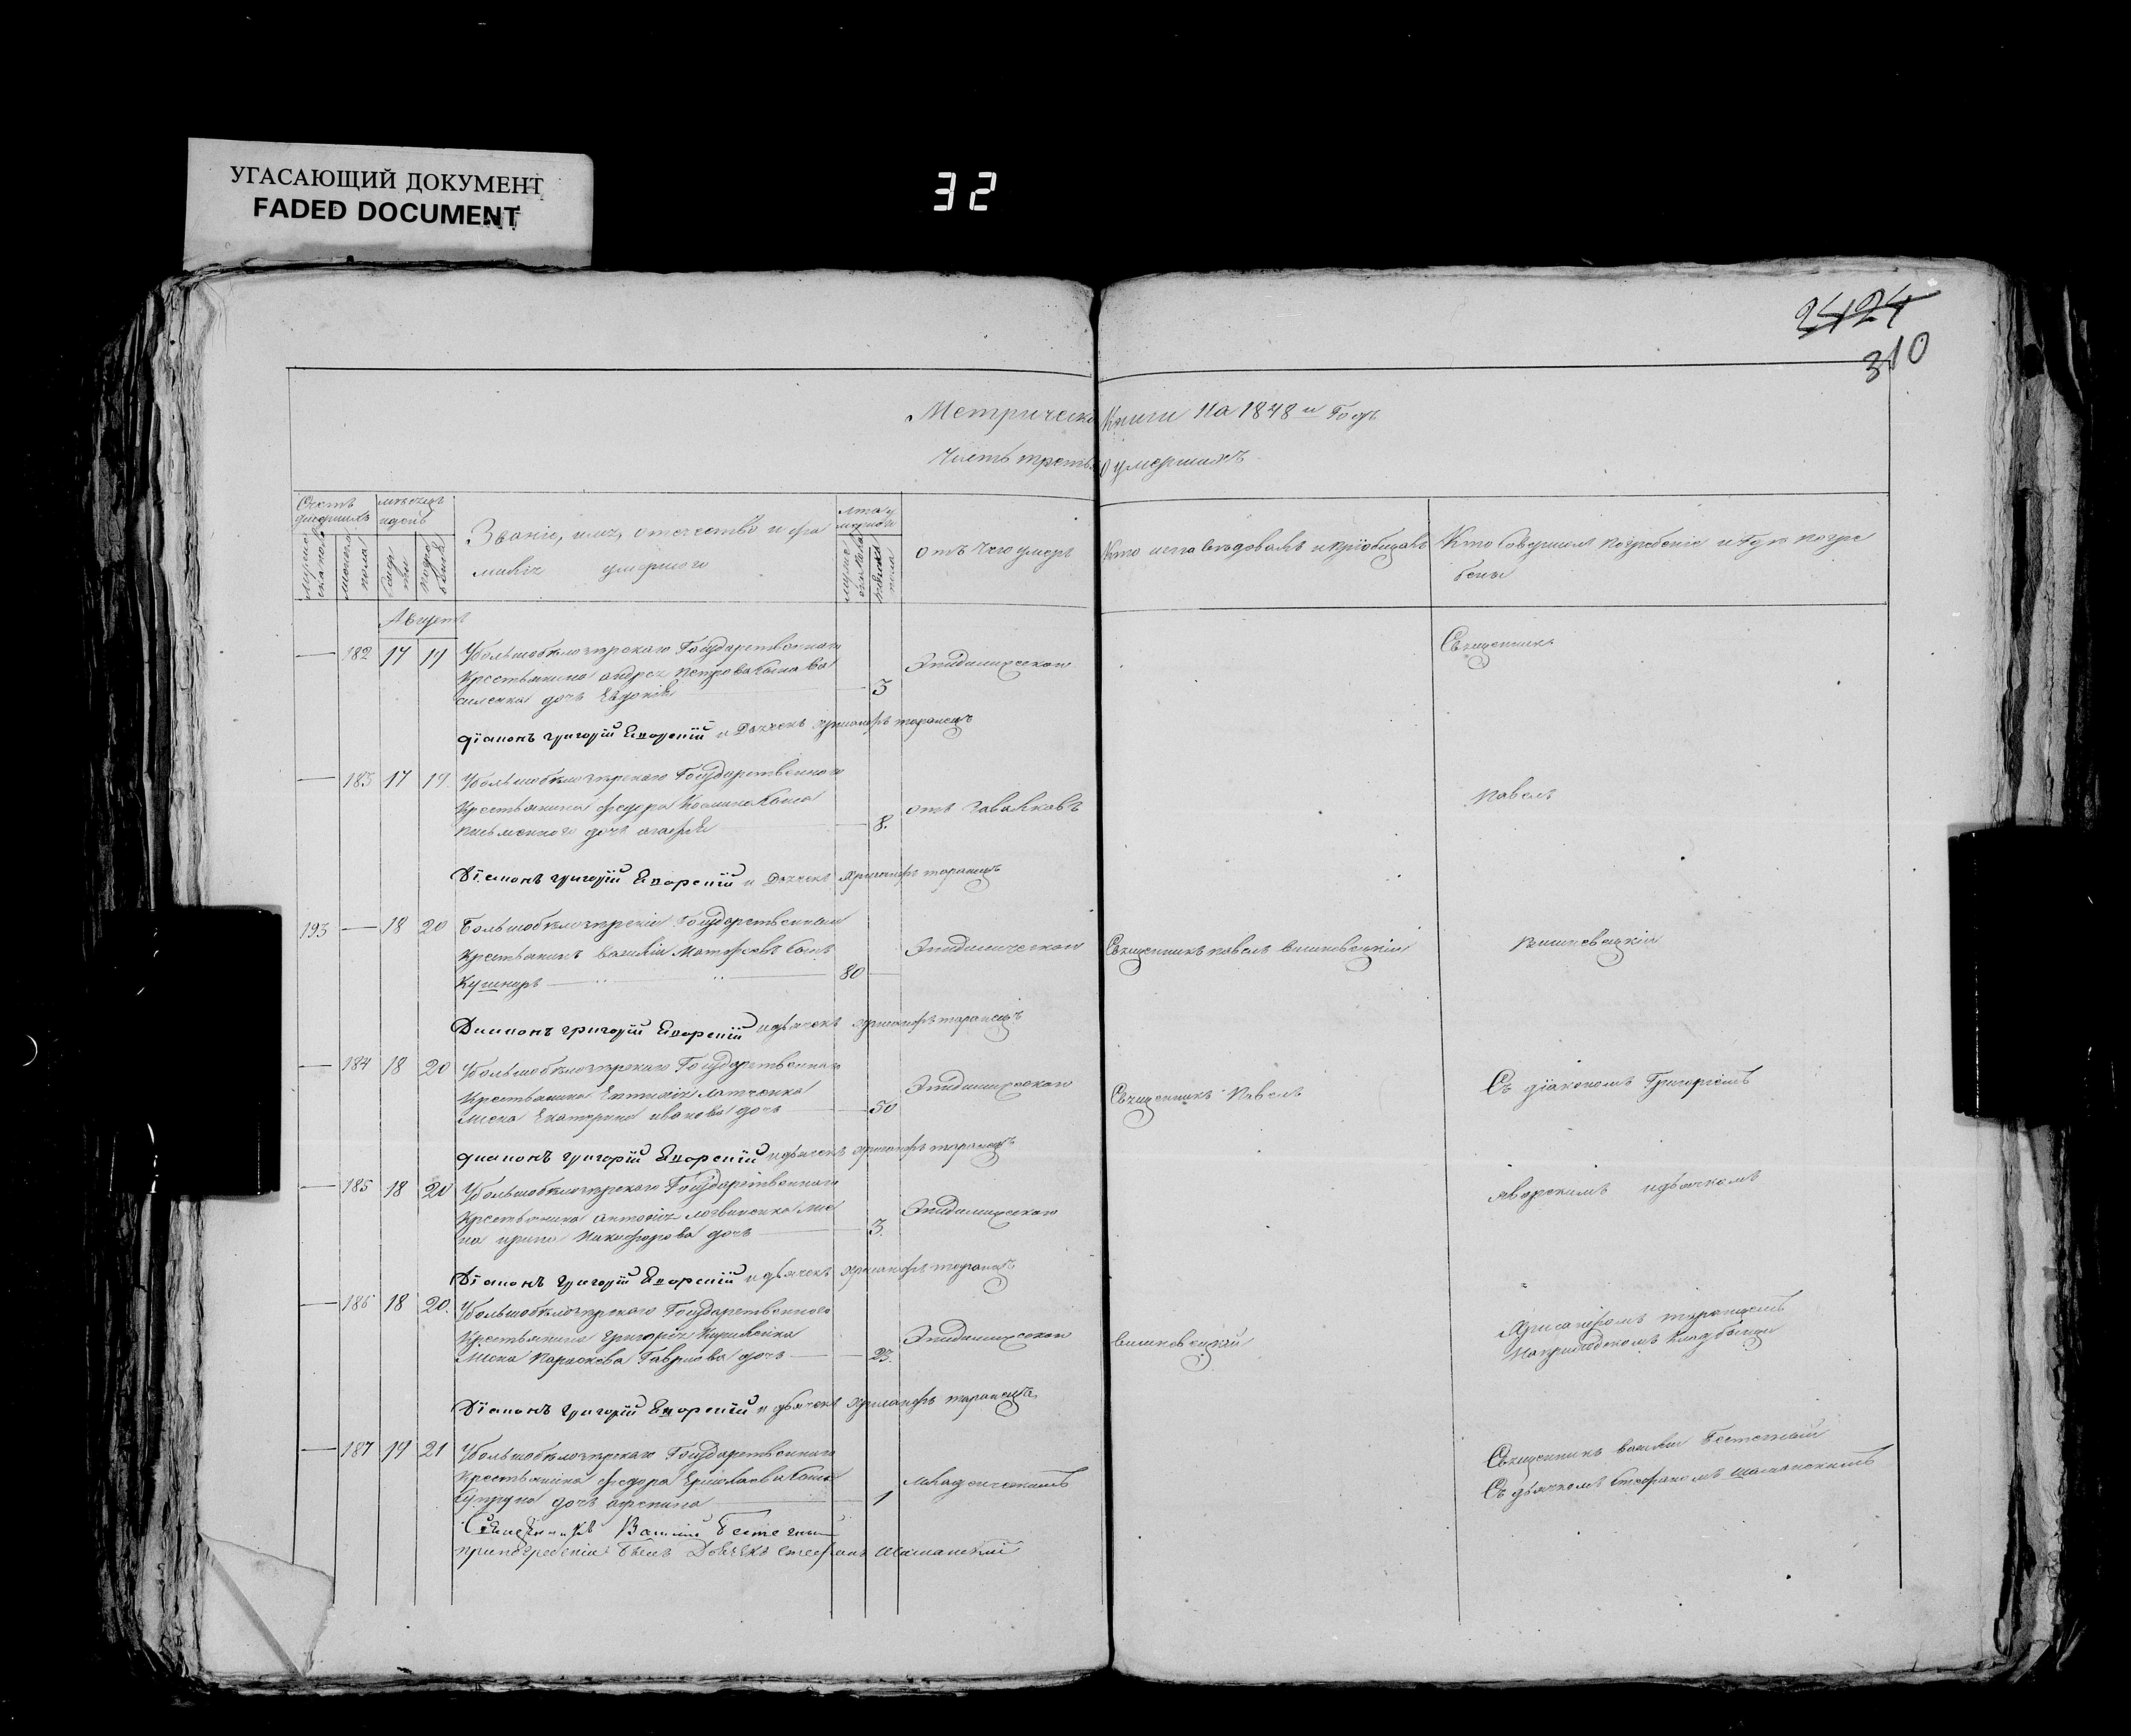 УГАСАЮЩИЙ ДОКУМЕНТ
FADED DOCUMENT
32
2424
310
Метрической Книги На 1848й Годъ
Часть третья о умершихъ
Счетъ умершихъ
мѣсяцъ и день
Званіе, имя, отечество и фамилія умершаго
лѣта умершаго
отъ чего умеръ
Кто исповѣдовалъ и пріобщалъ
Кто совершилъ погребеніе и гдѣ погребены
мужеска пола
женска пола
смерти
погребенія
мужескаго пола
женска пола
Августъ
— 182 17 19 Убольшобѣлозерскаго Государственнаго
Крестьянина андрея Петрова сына Ва
силенка дочь Евдокія — 3
Эпидимическои
Священникъ
Діаконъ григорій Яворскій и Дьячекъ хрисанфъ таранецъ
— 183 17 19 Убольшобѣлозерскаго Государственнаго
Крестьянина федора сына
Письменного дочь агафія — 8.
отъ
Павелъ
Діаконъ григорій Яворскій и Дьячекъ хрисанфъ таранецъ
193 — 18 20 Большобѣлозерскій Государственный
Крестьянинъ василій Матфеевъ сынъ
Кушниръ — 80 —
Эпидимическои
Священникъ павелъ вишневецкій
вишневецкій
Диаконъ григорій Яворскій и дьячекъ хрисанфъ таранецъ
— 184 18 20 Убольшобѣлозерскаго Государственнаго
Крестьянина Евтихія
жена Екатерина иванова дочь — 50
Эпидимическои
Священникъ Павелъ
Съ діакономъ Григоріемъ
диаконъ григорій Яворскій и дьячекъ хрисанфъ таранецъ
— 185 18 20 Убольшобѣлозерскаго Государственнаго
Крестьянина антонія логвиненка же
на ирина Никифорова дочь — 3.
Эпидимическои
яворскимъ и дьячкомъ
Діаконъ григорій Яворскій и дьячекъ хрисанфъ таранецъ
— 186 18 20. Убольшобѣлозерскаго Государственного
Крестьянина григорія
жена параскева Гаврилова дочь — 23.
Эпидимическои
вишневецкій
хрисанфомъ таранцемъ
на приходскомъ кладбищи
Діаконъ григорій Яворскій и дьячекъ хрисанфъ таранецъ
— 187 19 21 Убольшобѣлозерскаго Государственнаго
Крестьянина федора Ермолаева сына
Супруна дочь — 1
Младенческимъ
Священникъ василій Бестечный
Съ дьячкомъ стефаномъ шаманскимъ
Священникъ Василій Бестечный
при погребеніи былъ Дьячекъ стефанъ шаманскій